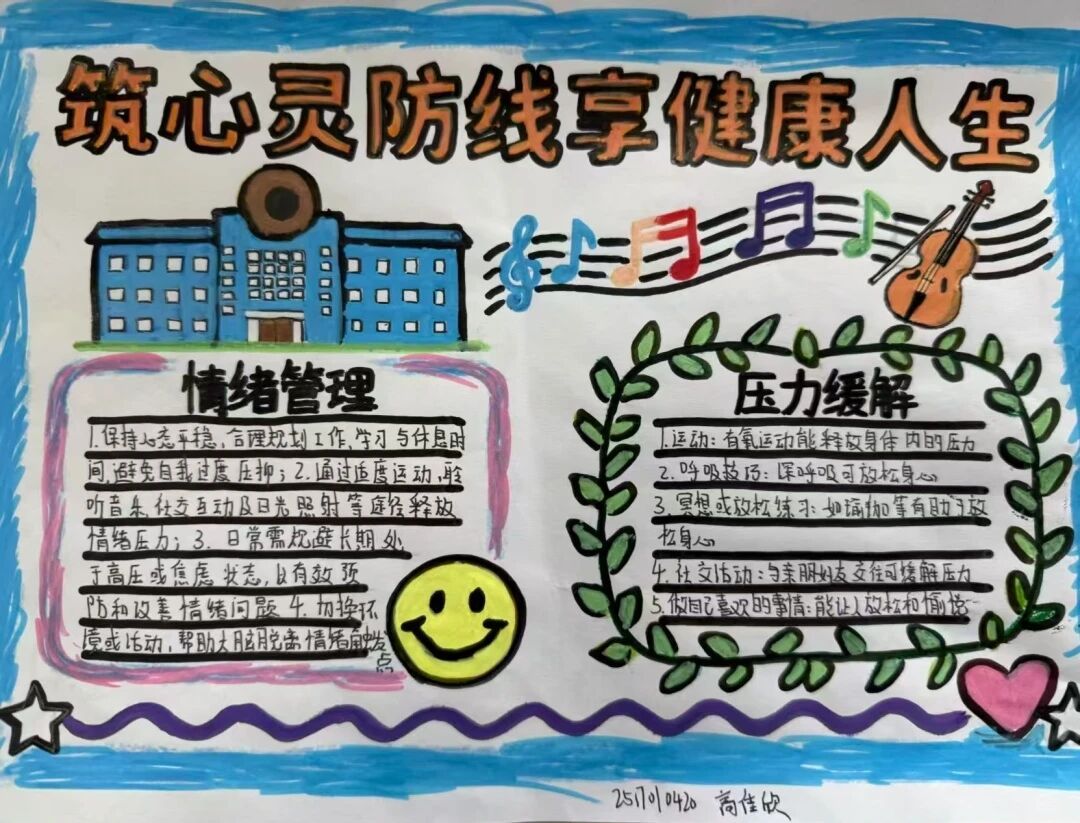 筑心灵防线享健康人生
情绪管理
1.保持心态平稳,合理规划工作,学习与休息时
间,避免自我过度压抑;2.通过适度运动,聆
听音乐,社交互动及日光照射等途径释放
情绪压力;3.日常需规避长期处
于高压或焦虑状态,以有效预
防和改善情绪问题 4.切换环
境或活动,帮助大脑脱离情绪触发
点
压力缓解
1.运动:有氧运动能释放身体内的压力
2.呼吸技巧:深呼吸可放松身心
3.冥想或放松练习:如瑜伽等有助于放
松身心
4.社交活动:与亲朋好友交往可缓解压力
5.做自己喜欢的事情:能让人放松和愉悦
251010420 高佳欣